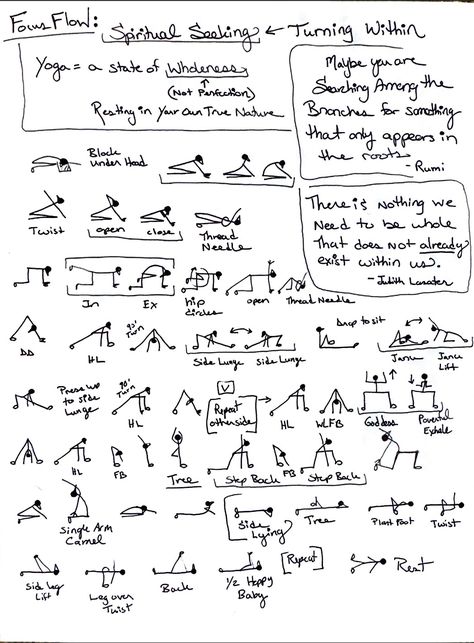 Focus Flow: Spiritual Seeking ← Turning Within
Yoga = a state of Wholeness
(Not Perfection)
Resting in Your Own True Nature
Maybe you are
Searching Among the
Branches for something
that only appears in
the roots
- Rumi
Block
Under Head
There is nothing we
Need to be whole
That does not already
exist within us.
- Judith Lasater
Twist open close Thread
Needle
In Ex hip
circles open Thread Needle
90° Turn
Drop to sit
DD HL Side Lunge Side Lunge Janu Janu
Lift
Press up
to side
Lunge
90° Turn
V
Repeat
other side
HL HL WLFB Goddess Powerful
Exhale
HL FB Tree Step Back FB Step Back
Single Arm
Camel
Side
Lying
Tree Plant Foot Twist
Side Leg
Lift
Leg over
Twist
Back 1/2 Happy
Baby
[Repeat]
Rest